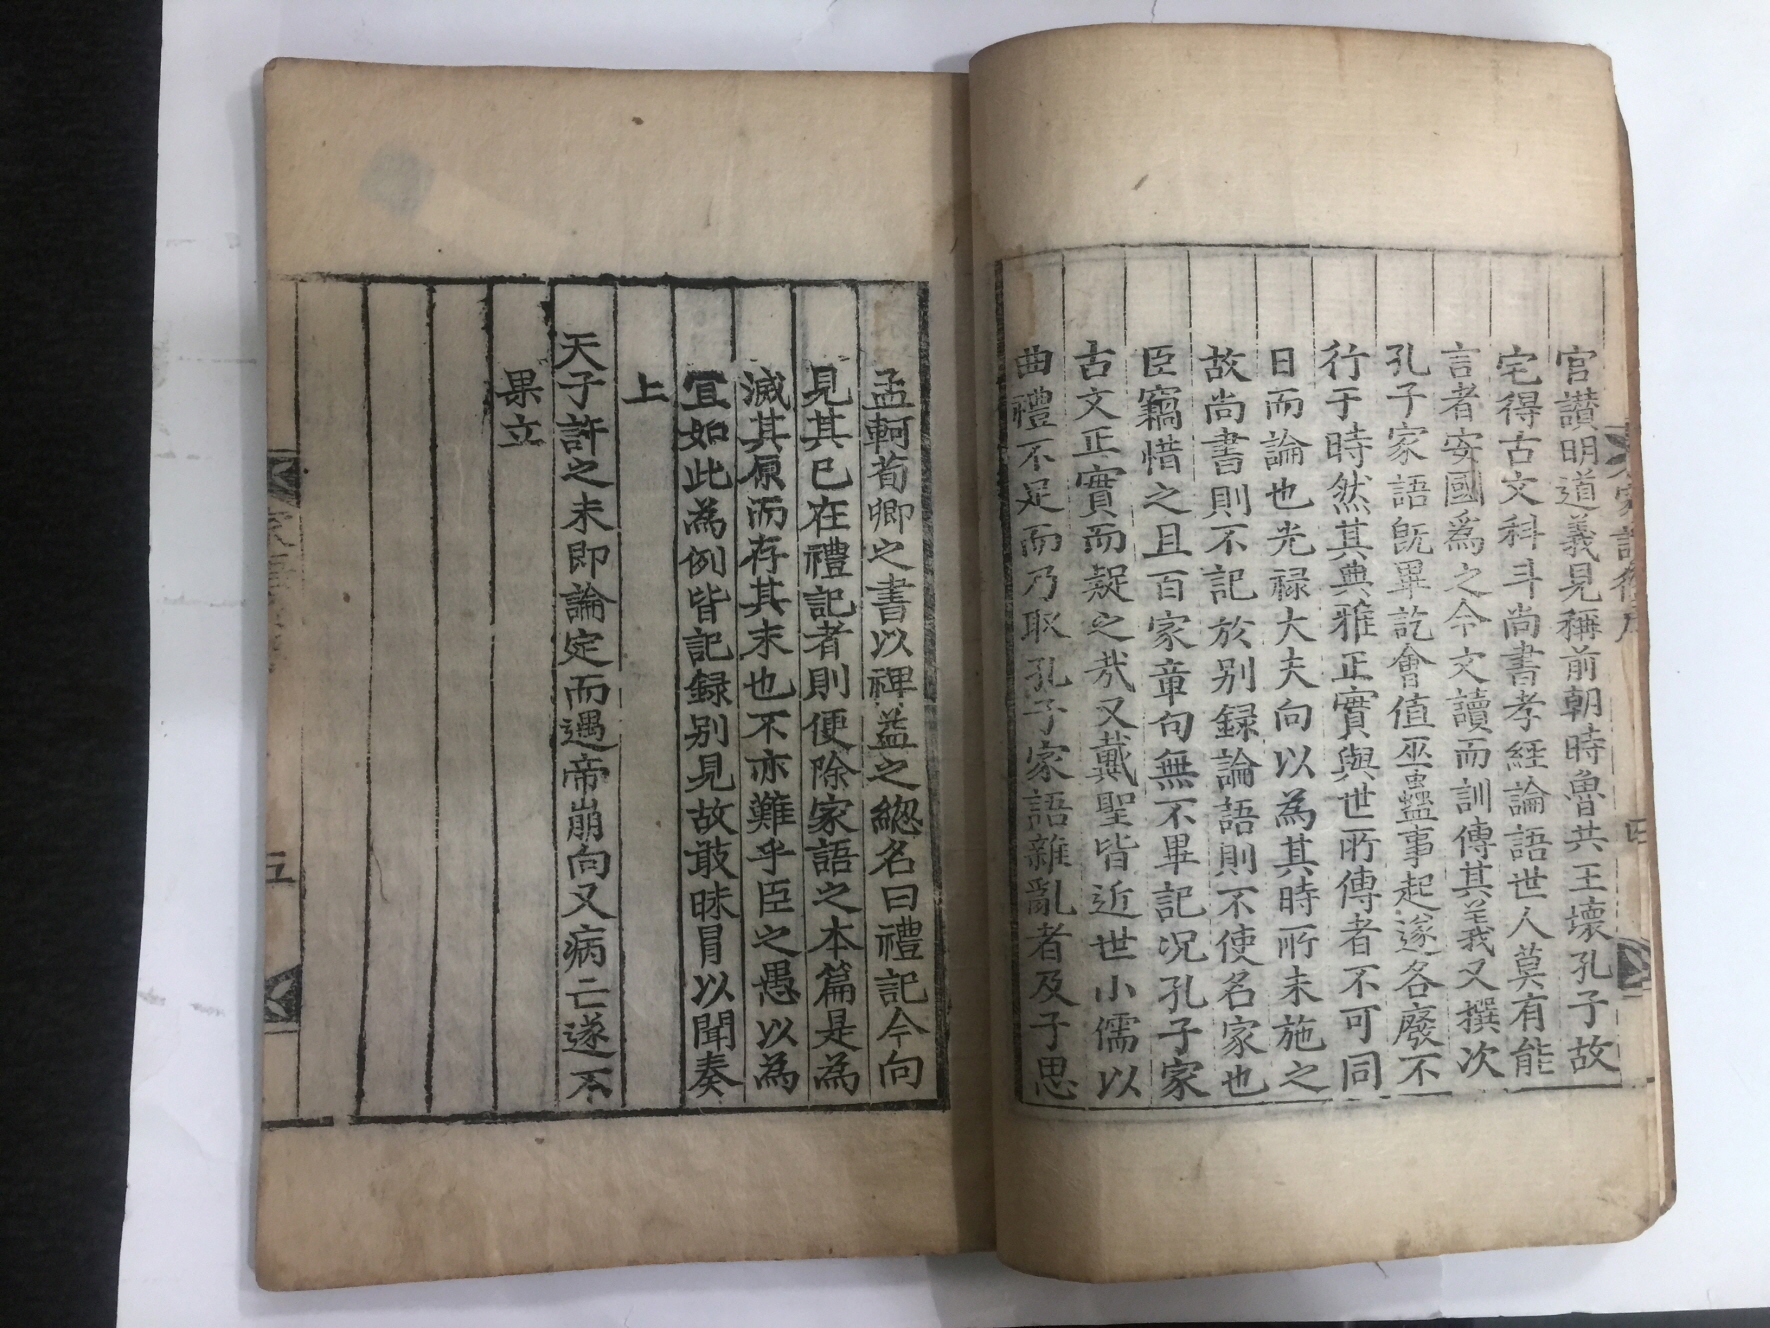 官讃明道義見稱前朝時魯共王壞孔子故
宅得古文科斗尚書孝經論語世人莫有能
言者安國爲之今文讀而訓傳其義又撰次
孔子家語既畢訖會值巫蠱事起遂各廢不
行于時然其典雅正實與世所傳者不可同
日而論也光禄大夫向以為其時所未施之
故尚書則不記於别録論語則不使名家也
臣竊惜之且百家章句無不畢記况孔子家
古文正實而疑之㢤又戴聖皆近世小儒以
曲禮不足而乃取孔子家語雜亂者及子思
孟軻荀卿之書以裨益之緫名曰禮記今向
見其已在禮記者則便除家語之本篇是為
滅其原而存其末也不亦難乎臣之愚以為
宜如此為例皆記録别見故敢昧冒以聞奏
上
天子許之未即論定而遇帝崩向又病亡遂不
果立
五